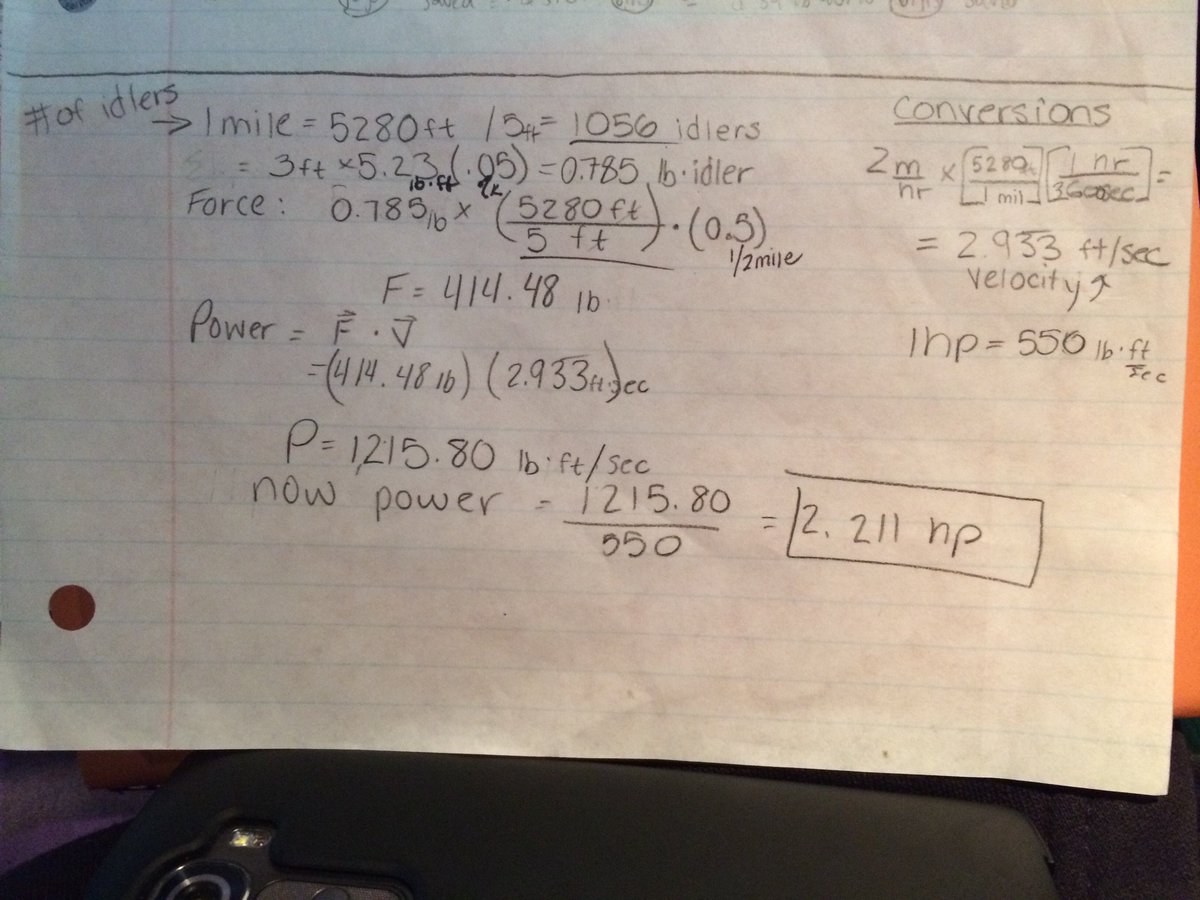 # of idlers → 1 mile = 5280 ft / 5ft = 1056 idlers
= 3ft × 5.23 (.05) = 0.785 lb·idler
lb·ft
Force: 0.785 lb × (5280 ft / 5 ft) · (0.5)
1/2 mile
F = 414.48 lb.
Power = F⃗ · V⃗
= (414.48 lb) (2.933 ft/sec
P = 1,215.80 lb·ft/sec
now power = 1215.80 / 550 = 2.211 hp
Conversions
2 m/hr × [5280 / 1 mil] [1 hr / 3600sec] =
= 2.933 ft/sec
velocity ↗
1hp = 550 lb·ft/sec